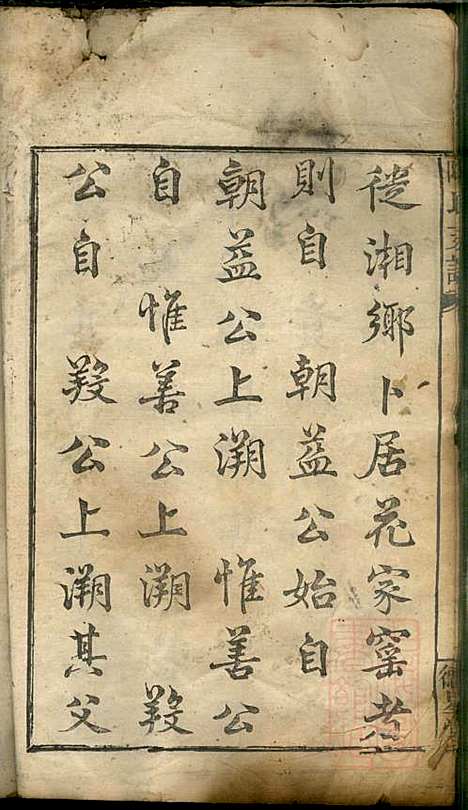 徙湘鄉卜居花家窑者
則自 朝益公始自
朝益公上溯 惟善公
自 惟善公上溯 毅
公自 毅公上溯其父